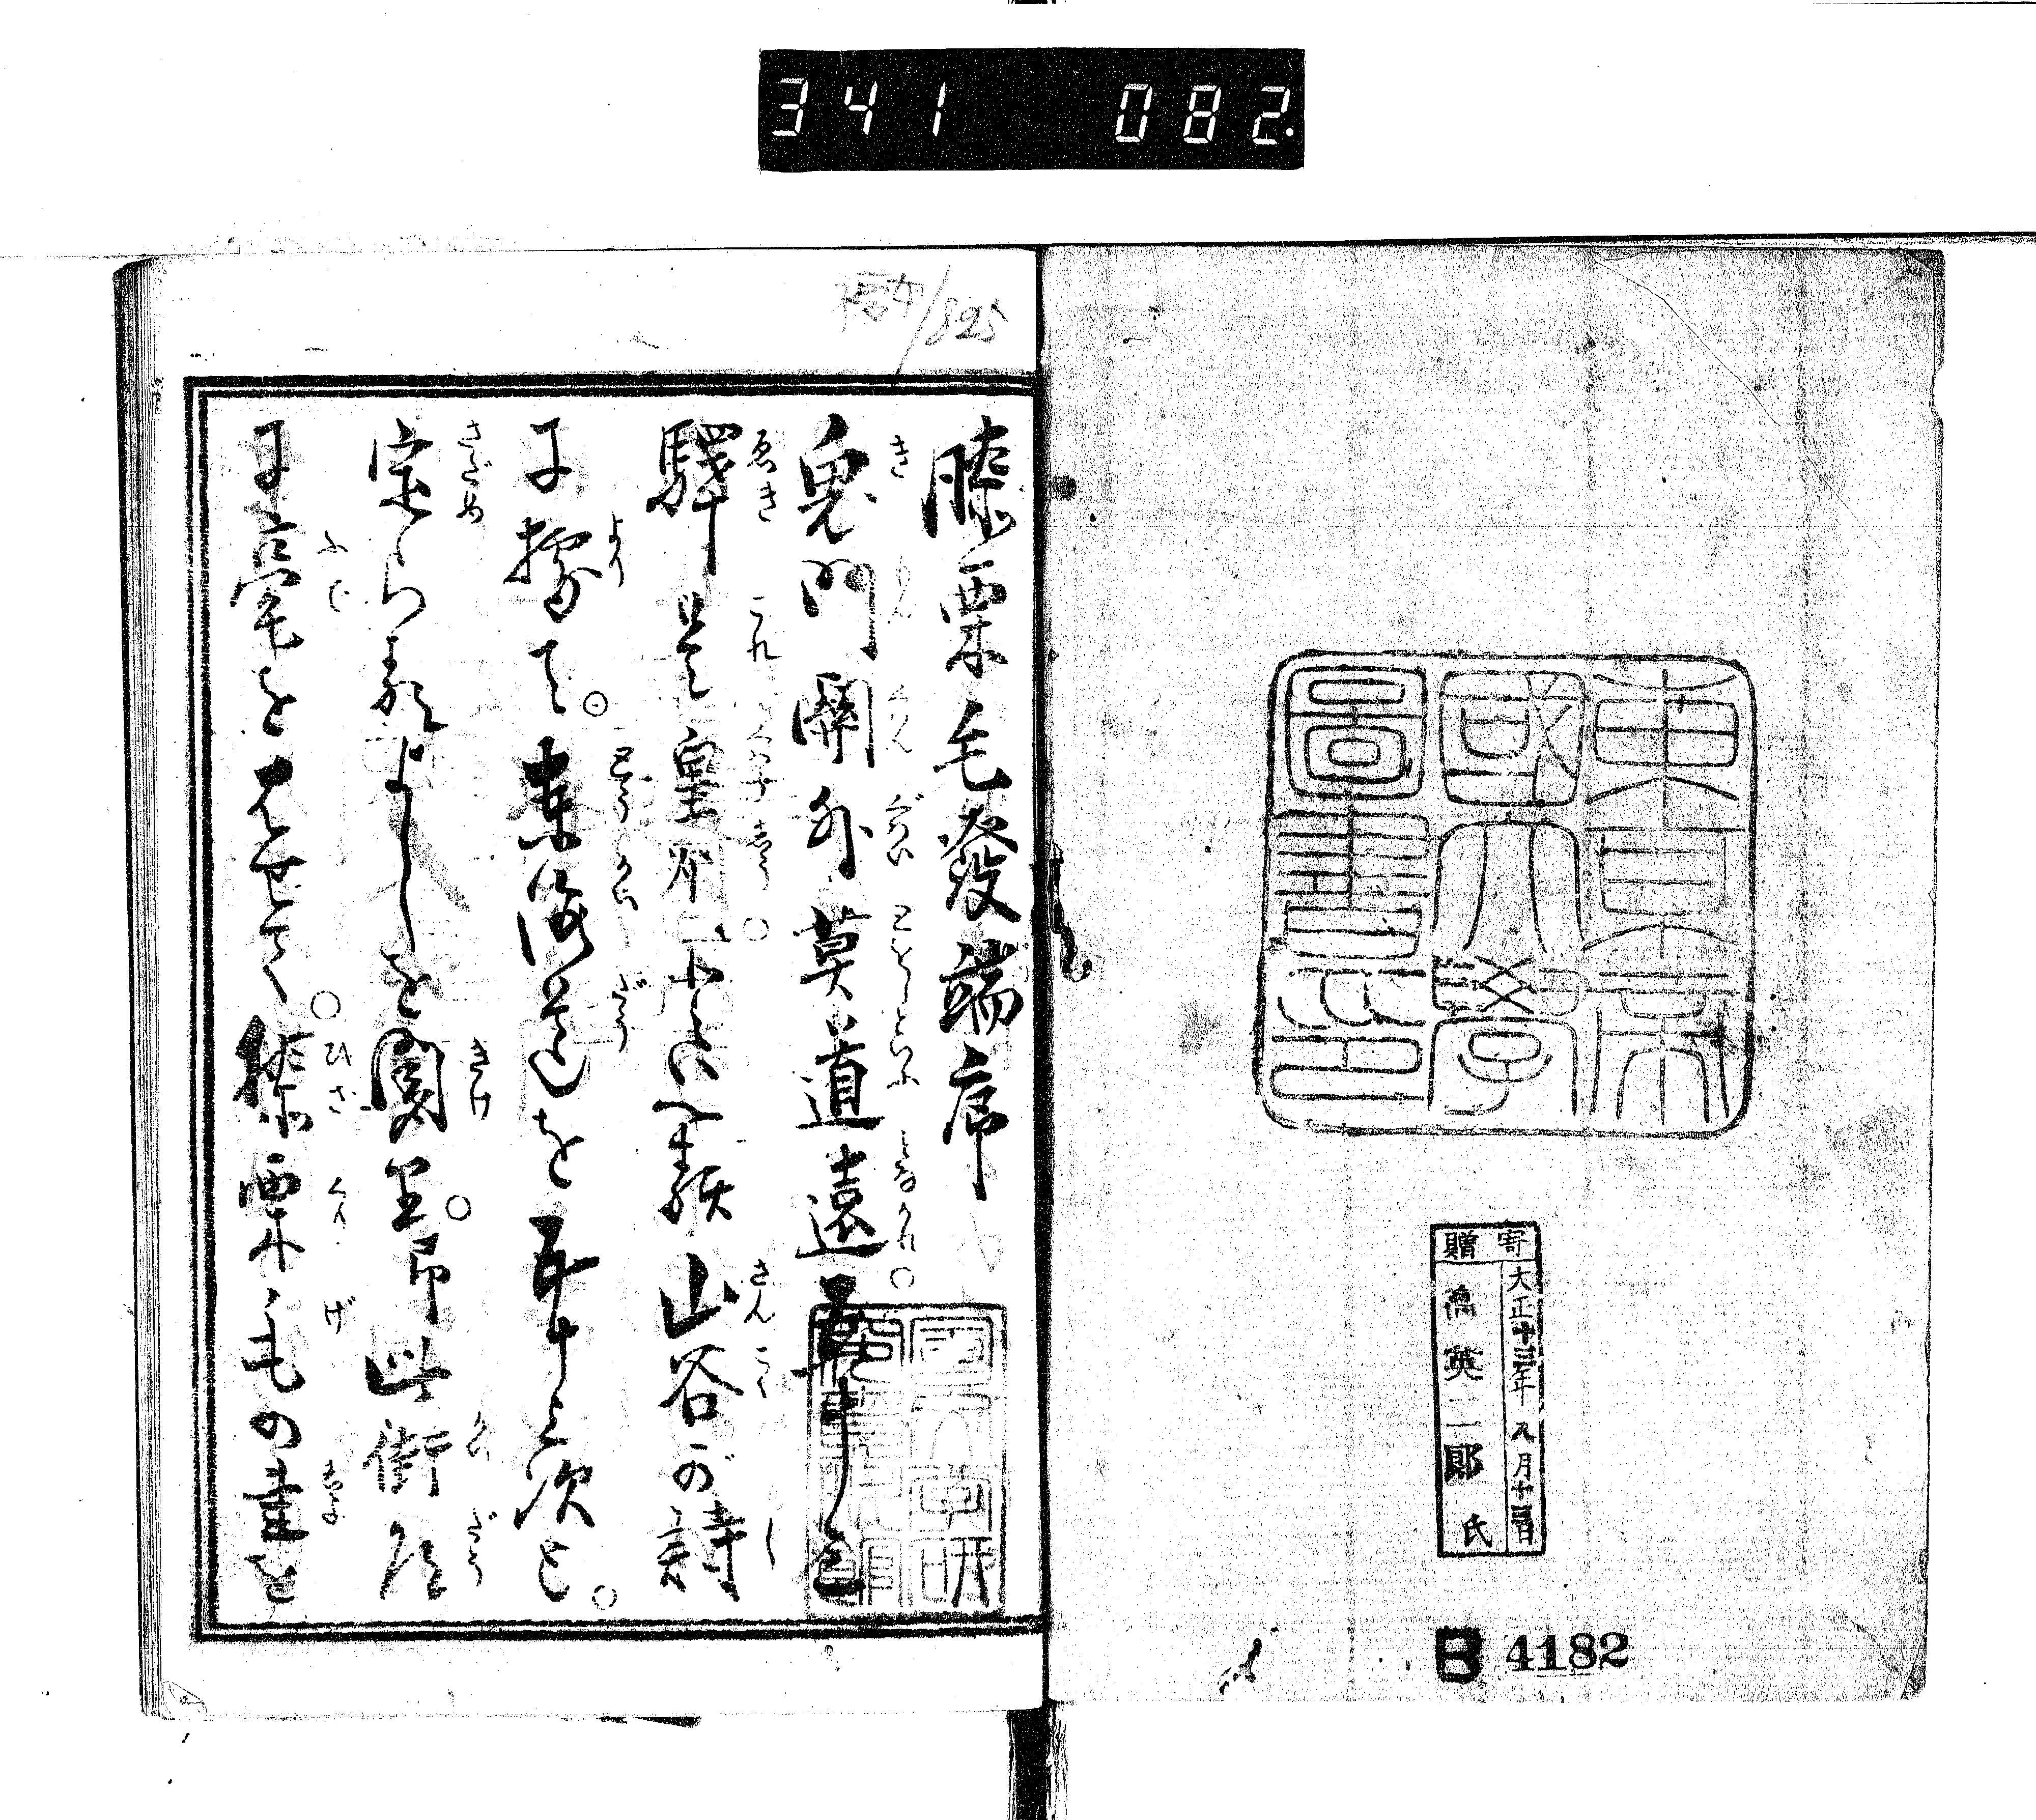 341 082
東京帝
國大學
圖書印
寄贈
大正十三年八月十三日
英二郎氏
B 4182
膝栗毛發端序
鬼門關外莫道遠○五十三
驛是皇州○といへる山谷が詩
に據て○東海道を五十三次と○
定らるゝよしを聞り○予此街道
に毫をはせて○膝栗毛の書を